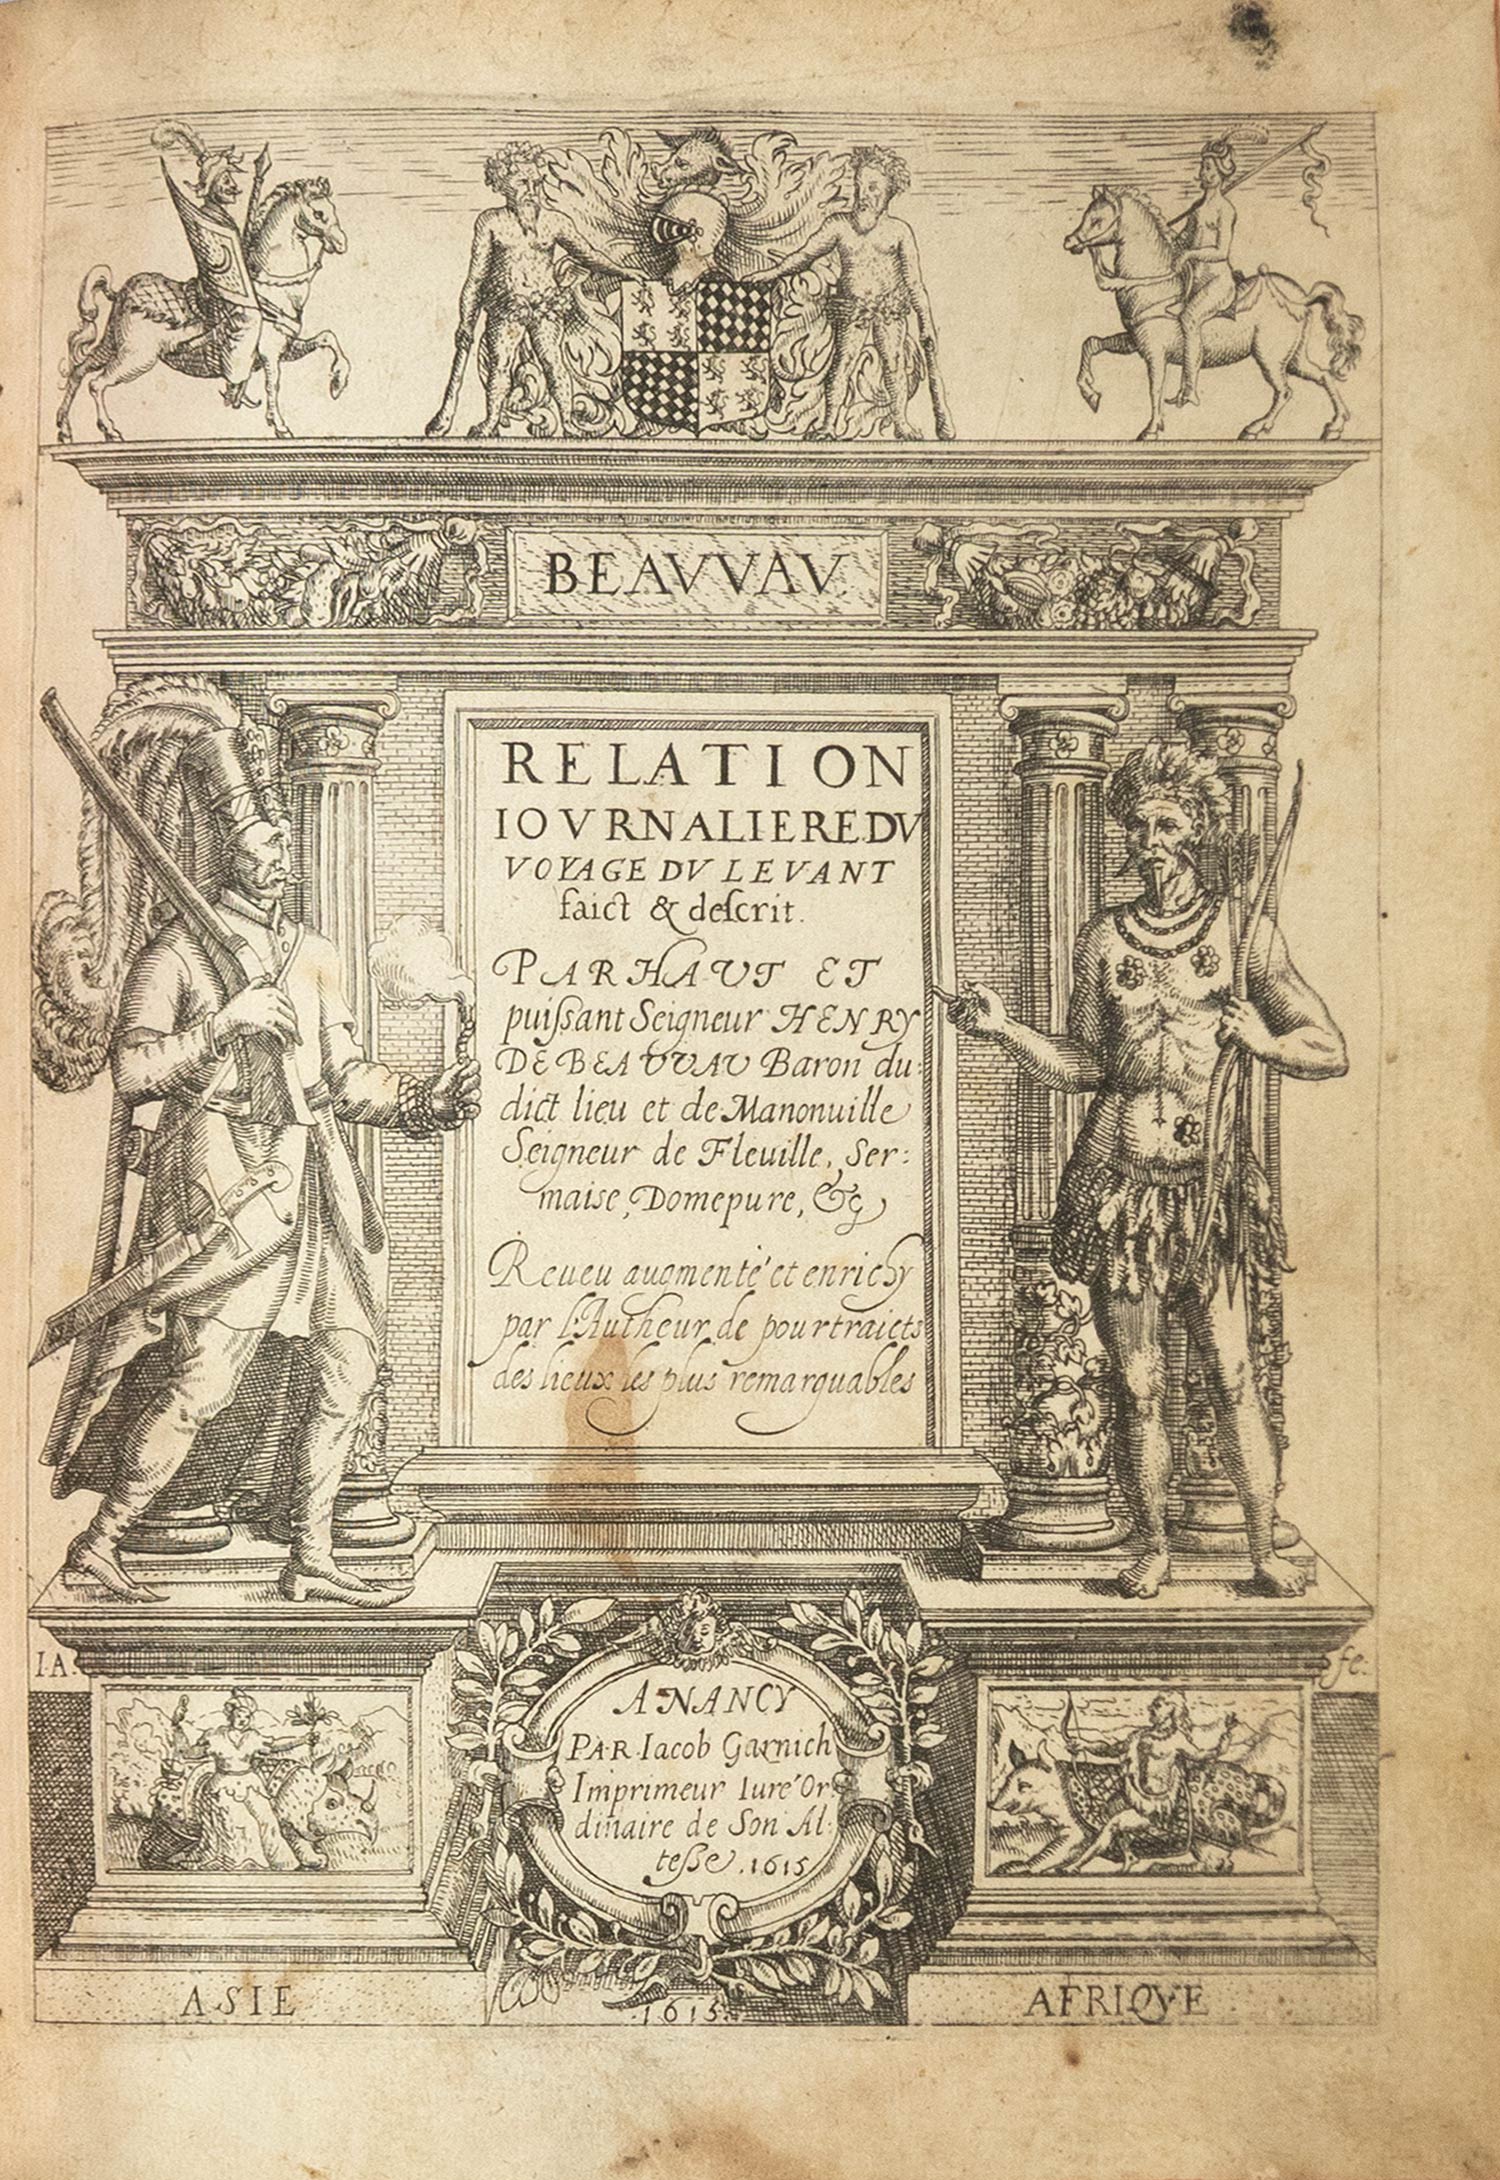 BEAVVAV.
RELATION
IOVRNALIERE DV
VOYAGE DV LEVANT
faict & deſcrit.
PAR HAVT ET
puiſsant Seigneur HENRY
DE BEAVVAV Baron du:
dict lieu et de Manonuille
Seigneur de Fleuille, Ser:
maise, Domepure, &c
Reueu augmenté et enrichy
par l'Autheur de pourtraicts
des lieux les plus remarquables
I.A.
fe.
A NANCY
PAR Iacob Garnich
Imprimeur Iuré Or:
dinaire de Son Al:
teſse. 1615
ASIE
1615
AFRIQVE